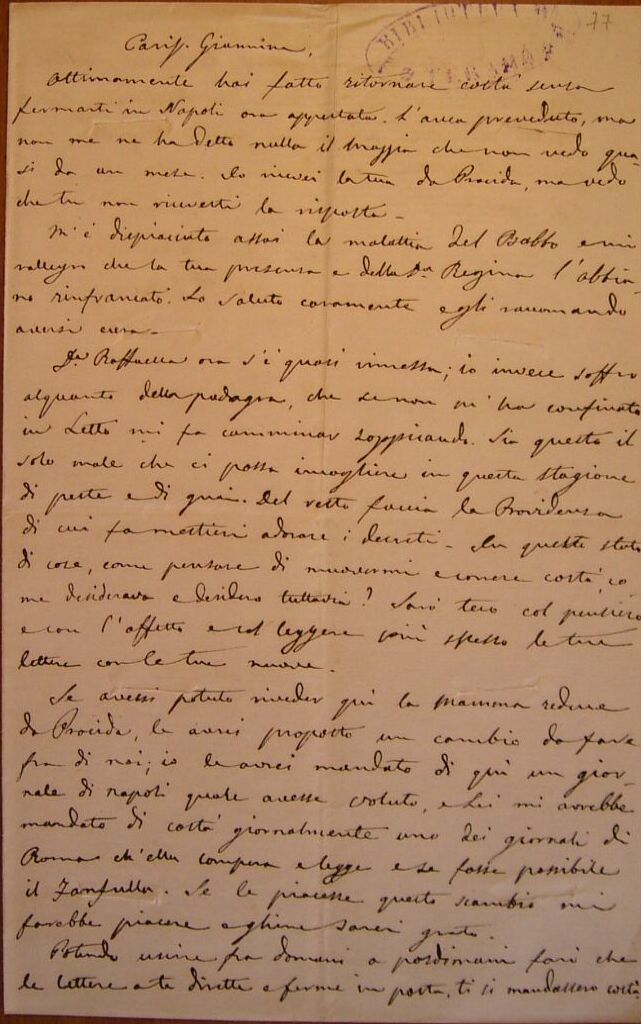 77
BIBLIOTECA
TERAMO
Cariss. Giannina,
Ottimamente hai fatto ritornare costà senza
fermarti in Napoli ora appestata. L'avea preveduto, ma
non me ne ha detto nulla il Maggia che non vedo qua-
si da un mese. Io ricevei la tua da Procida, ma vedo
che tu non ricevesti la risposta -
M'è dispiaciuta assai la malattia del Babbo e mi
rallegro che la tua presenza e della Sra Regina l'abbia-
no rinfrancato. Lo saluto caramente e gli raccomando
aversi cura -
Da Raffaella ora s'è quasi rimessa; io invece soffro
alquanto della podagra, che se non m'ha confinato
in letto mi fa camminar zoppicando. Sia questo il
solo male che ci possa incogliere in questa stagione
di peste e di guai. Del resto faccia la Providenza
di cui fa mestieri adorare i decreti - In questo stato
di cose, come pensare di muovermi e correre costà, co
me desiderava e desidero tuttavia? Sarò teco col pensiero
e con l'affetto e col leggere più spesso le tue
lettere con le tue nuove.
Se avessi potuto riveder qui la Mamma reduce
da Procida, le avrei proposto un cambio da fare
fra di noi; io le avrei mandato di qui un gior-
nale di Napoli quale avesse voluto, e Lei mi avrebbe
mandato di costà giornalmente uno dei giornali di
Roma ch'ella compera e legge e se fosse possibile
il Fanfulla. Se le piacesse questo scambio mi
farebbe piacere e gliene sarei grato.
Potendo uscire fra domani o posdimani farò che
le lettere a te dirette e ferme in posta, ti si mandassero costà